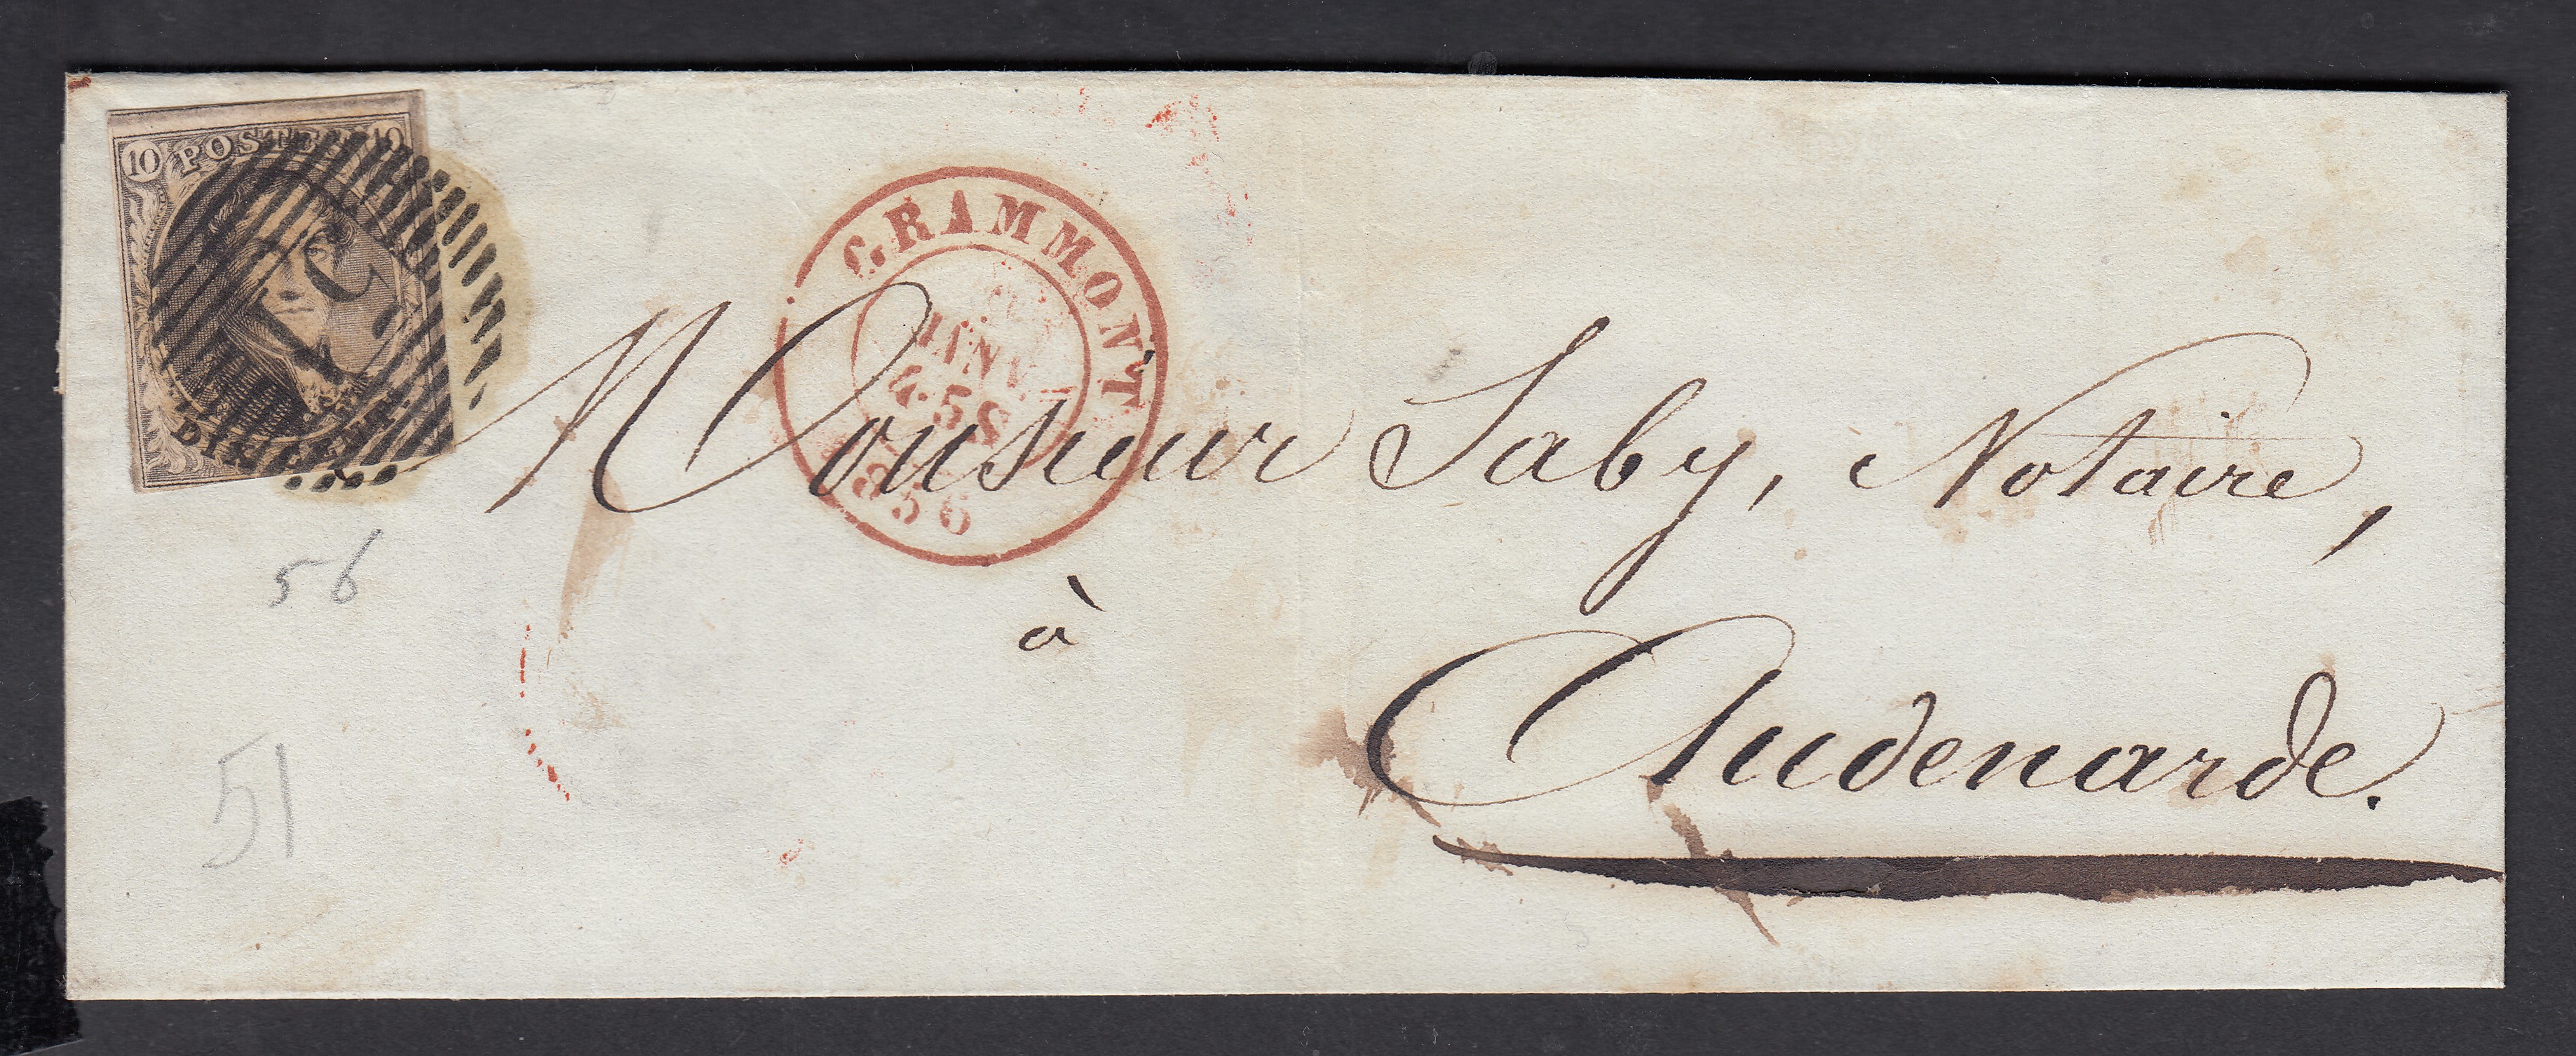 10 POSTES 10
DIX CENT.
GRAMMONT
JANV.
1856
Monsieur Saby, Notaire,
56
à
Audenarde.
51